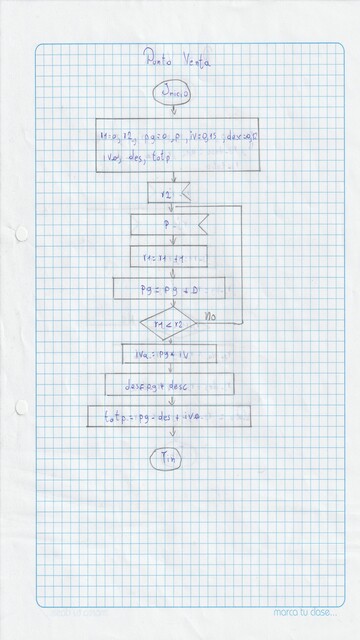 Punto Venta
Inicio
r1=0, r2, pg=0, p, iv=0,15, desc=0,2
iva, des, totp
r2
P
r1=r1+1
pg=pg+p
r1<r2
No
iva=pg*iv
des=pg*desc
totp=pg-des+iva
Fin
marca tu clase...